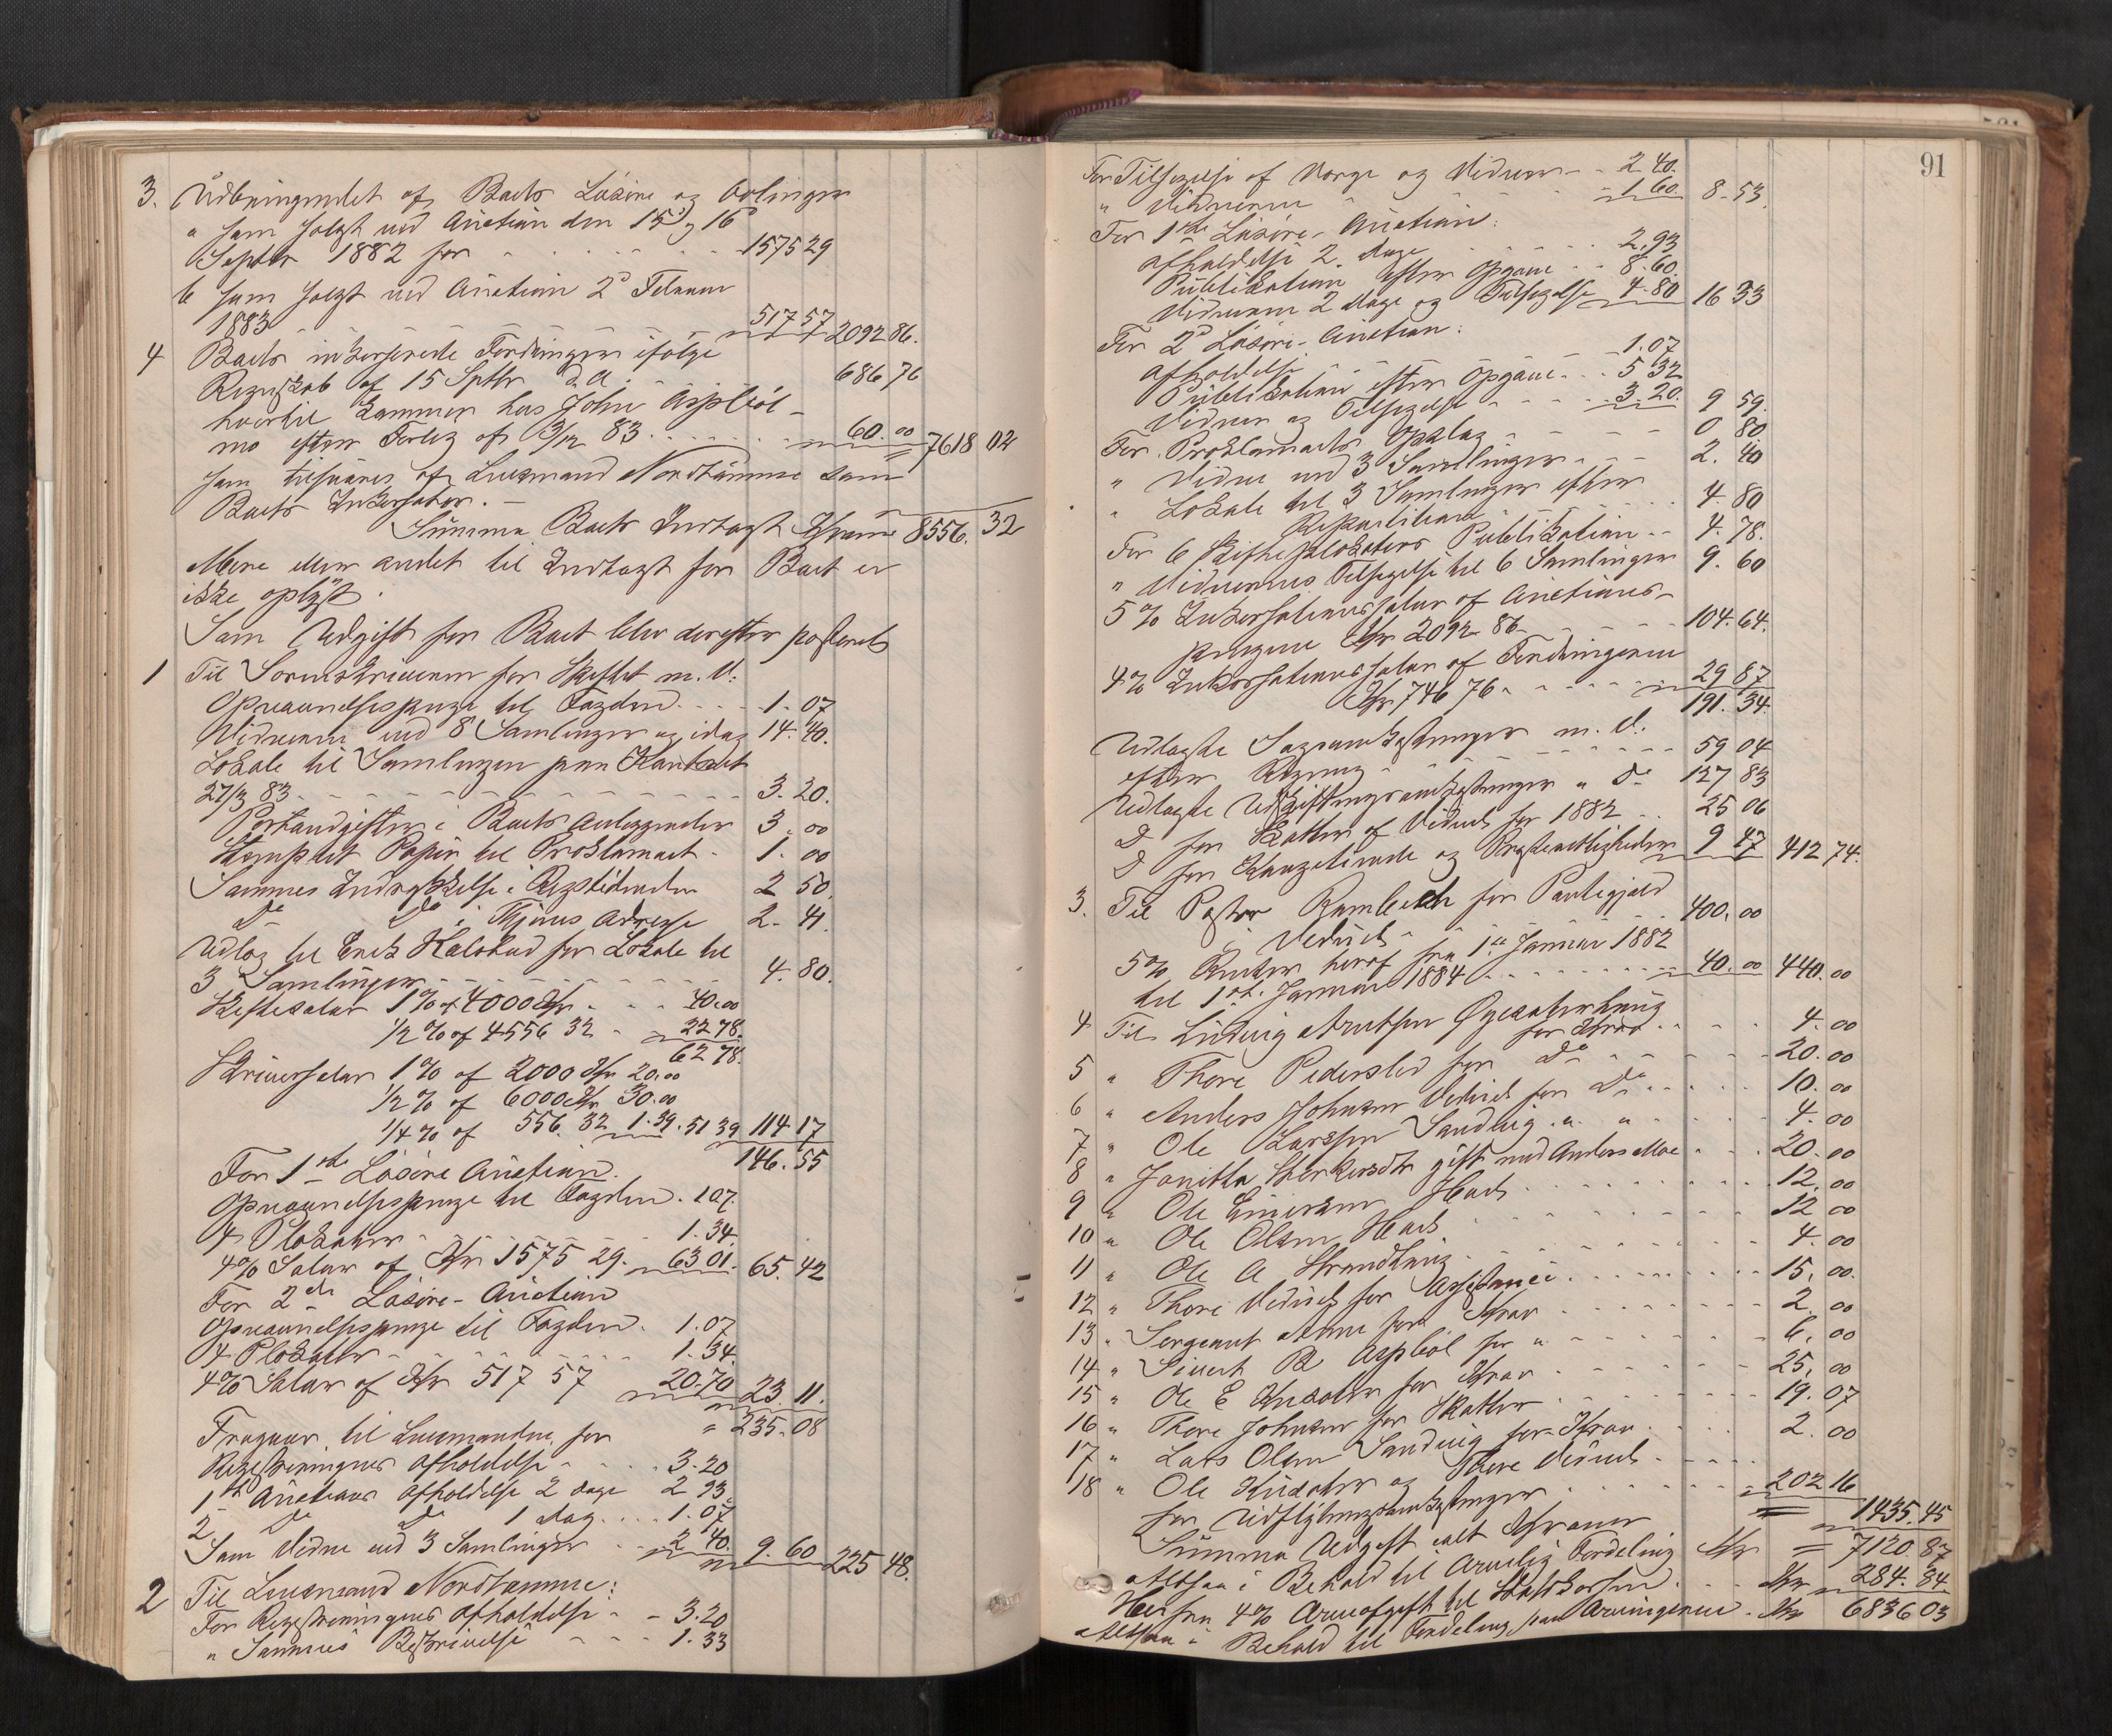 3. Udbringendet af Boets Løsøre og Avlinger
a som solgt ved Auction den 15d og 16d
Septbr 1882 for 1575 29
b som solgt ved Auction 2d Februar
1883 517 57 2092 86.
4 Boets inkasserede Fordringer ifølge
Regnskab af 15 Septbr d. A. 686 76
hvortil kommer hos John Aspbøl-
mo efter Forlig af 3/12 83 60.00 7618 02
som tilsvares af Lensmand Nordtømme som
Boets Inkassator.
Summa Boets Indtægt Kroner 8556. 32
Mere eller andet til Indtægt for Boet er
ikke oplyst.
Som Udgift for Boet blev derefter posteret
1 Til Sorenskriveren for Skiftet m. V:
Opnævnelsespenge til Fogden 1. 07
Vidnerne ved 8 Samlinger og idag 14. 40.
Lokale til Samlingen paa Kontoret
27/3 83 3. 20.
Portoudgifter i Boets Anliggender 3. 00
Stemplet Papir til Proklamaet 1. 00
Sammes Indrykkelse i Rigstidenden 2 50.
Do Do i Thjems Adresse 2. 41.
Udlæg til Erik Kalstad for Lokale til
3 Samlinger 4. 80.
Skiftesalær 1% af 4000 Kr 40.00
1/2 % af 4556 32 22 78.
62 78.
Skriversalær 1% af 2000 Kr 20.00
1/2 % af 6000 Kr 30.00
1/4 % af 556. 32 1.39. 51 39 114 17
146. 55
For 1ste Løsøre Auction.
Opnævnelsespenge til Fogden. 1.07.
4 Plakater 1. 34.
4% Salær af Kr 1575 29. 63 01. 65. 42
For 2den Løsøre-Auction
Opnævnelsespenge til Fogden. 1. 07
4 Plakater 1. 34.
4% Salær af Kr 517 57 20.70 23. 11.
" 235. 08
Fragaar til Lensmanden for
Registreringens Afholdelse 3. 20
1ste Auctions Afholdelse 2 dage 2 93.
2 Do Do 1 dag 1. 07
Som Vidne ved 3 Samlinger 2 40. 9. 60 225 48.
2 Til Lensmand Nordtømme:
For Registreringens Afholdelse 3. 20
" Sammes Beskrivelse 1. 33
91
For Tilsigelse af Værge og Vidner 2 40.
" Vidnerne 1 60. 8. 53.
For 1ste Løsøre-Auction:
Afholdelse 2 dage 2. 93
Publikation efter Opgave 8. 60.
Vidnerne 2 dage og Tilsigelse 4. 80 16 33
For 2d Løsøre-Auction:
Afholdelse 1. 07
Publikation efter Opgave 5 32
Vidner og Tilsigelse 3. 20. 9 59.
For Proklamaets Opslag 0 80
" Vidne ved 3 Samlinger 2. 40
" Lokale til 3 Samlinger efter
Repartition 4. 80
For 6 Skifteplakaters Publikation 4. 78.
" Vidnernes Tilsigelse til 6 Samlinger 9. 60
5% Inkassationssalær af Auctions-
pengene Kr 2092. 86 104. 64.
4% Inkassationssalær af Fordringerne
Kr 746 76 29 87
191. 34.
Udlagte Sagsomkostninger m. V.
efter Regning 59 04
Udlagte Udskiftningsomkostninger " do 127 83
Do for Skatter af Vedul for 1882 25 06
Do for 9 47 412 74.
3. Til Pastor for Pantegjæld
i 400. 00
5% Renter heraf fra 1ste Januar 1882
til 1ste Januar 1884 40. 00 440. 00
4 Til Ludvig Arntsen
for Krav 4. 00
5 " Thore Pedersled for Do 20. 00
6 " Anders Johnsen for Do 10. 00
7 " Ole Larssen Sandvig " " 4. 00
8 " gift med Anders Moe 20. 00
9 " Ole 12. 00
10 " Ole Olsen 12 00
11 " Ole A Strandhaug 4. 00
12 " Thore for Assistance 15. 00.
13 " Sergeant for Krav 2. 00
14 " Sivert R Aspbøl for " 6. 00
15 " Ole E for Krav 25. 00
16 " Thore Johnsen for Skatter 19. 07
17 " Lars Olsen Sandvig for Krav 2. 00
18 " Ole og Thore
for Udflytningsomkostninger 202 16
1435. 45
Summa Udgift ialt Kroner
Altsaa i Behold til Arvelig Fordeling Kr 7120. 87
Herfra 4% Arveafgift til Statskassen Kr 284. 84
Altsaa i Behold til Fordeling paa Arvingerne Kr 6836 03